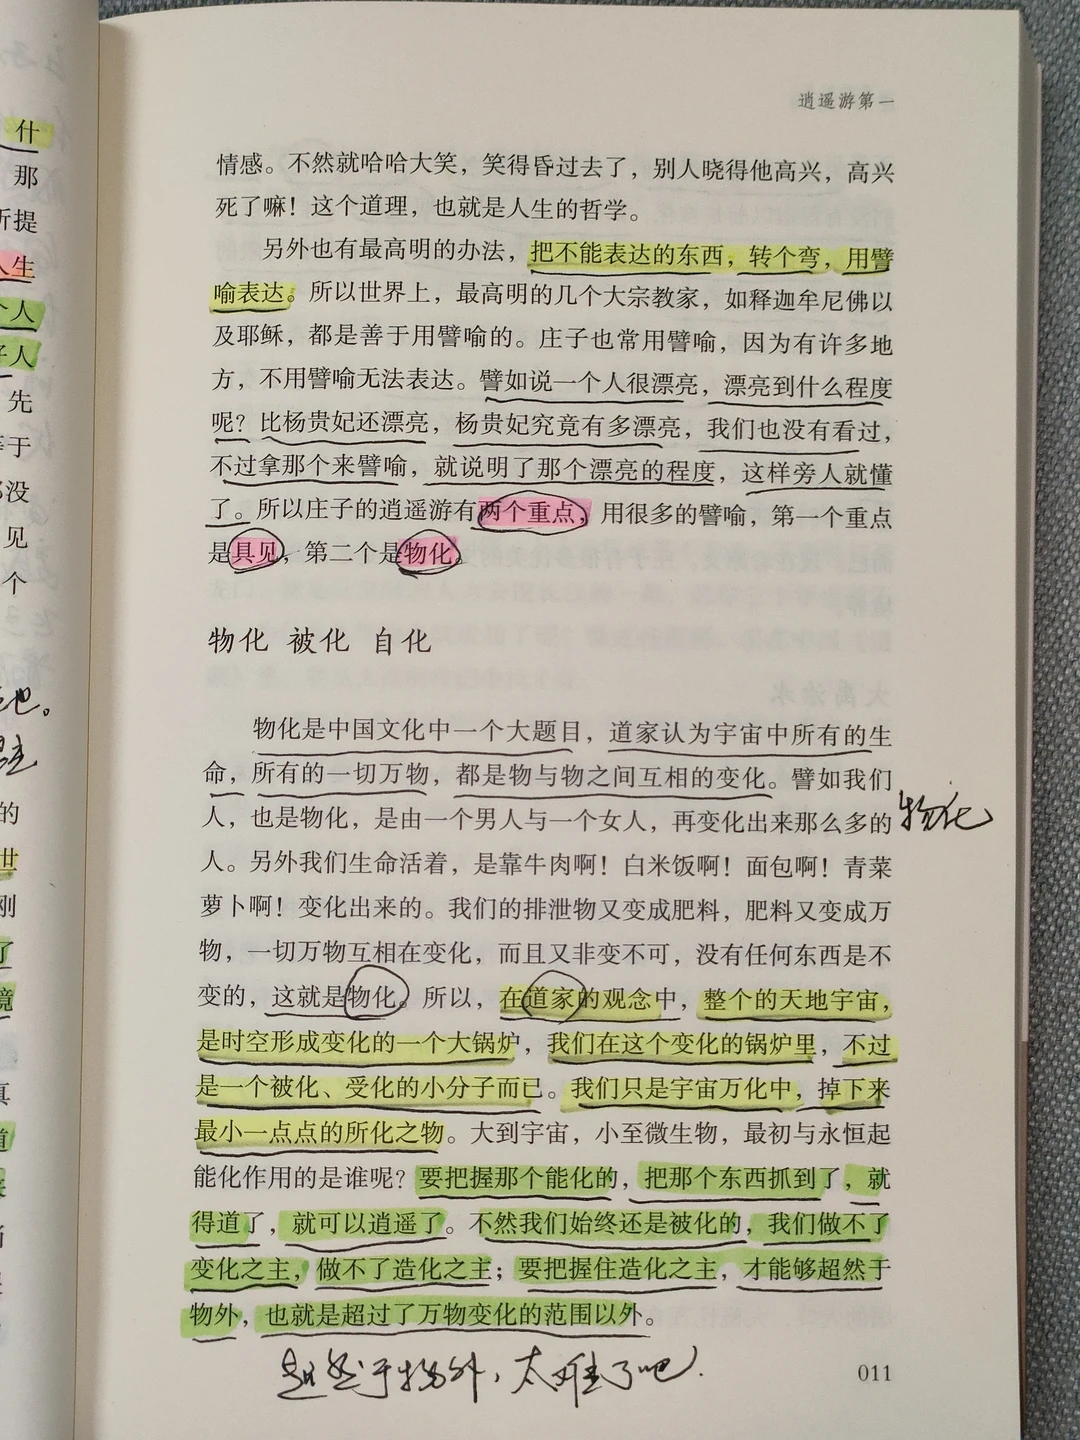 逍遥游第一
情感。不然就哈哈大笑，笑得昏过去了，别人晓得他高兴，高兴
死了嘛！这个道理，也就是人生的哲学。
另外也有最高明的办法，把不能表达的东西，转个弯，用譬
喻表达。所以世界上，最高明的几个大宗教家，如释迦牟尼佛以
及耶稣，都是善于用譬喻的。庄子也常用譬喻，因为有许多地
方，不用譬喻无法表达。譬如说一个人很漂亮，漂亮到什么程度
呢？比杨贵妃还漂亮，杨贵妃究竟有多漂亮，我们也没有看过，
不过拿那个来譬喻，就说明了那个漂亮的程度，这样旁人就懂
了。所以庄子的逍遥游有两个重点，用很多的譬喻，第一个重点
是具见，第二个是物化。
物化 被化 自化
物化是中国文化中一个大题目，道家认为宇宙中所有的生
命，所有的一切万物，都是物与物之间互相的变化。譬如我们
人，也是物化，是由一个男人与一个女人，再变化出来那么多的
物化
人。另外我们生命活着，是靠牛肉啊！白米饭啊！面包啊！青菜
萝卜啊！变化出来的。我们的排泄物又变成肥料，肥料又变成万
物，一切万物互相在变化，而且又非变不可，没有任何东西是不
变的，这就是物化。所以，在道家的观念中，整个的天地宇宙，
是时空形成变化的一个大锅炉，我们在这个变化的锅炉里，不过
是一个被化、受化的小分子而已。我们只是宇宙万化中，掉下来
最小一点点的所化之物。大到宇宙，小至微生物，最初与永恒起
能化作用的是谁呢？要把握那个能化的，把那个东西抓到了，就
得道了，就可以逍遥了。不然我们始终还是被化的，我们做不了
变化之主，做不了造化之主；要把握住造化之主，才能够超然于
物外，也就是超过了万物变化的范围以外。
超然于物外，太难了吧.
011
什
那
所提
人生
个人
好人
先
等于
都没
见
个
也。
的
世
刚
了
境
真
道